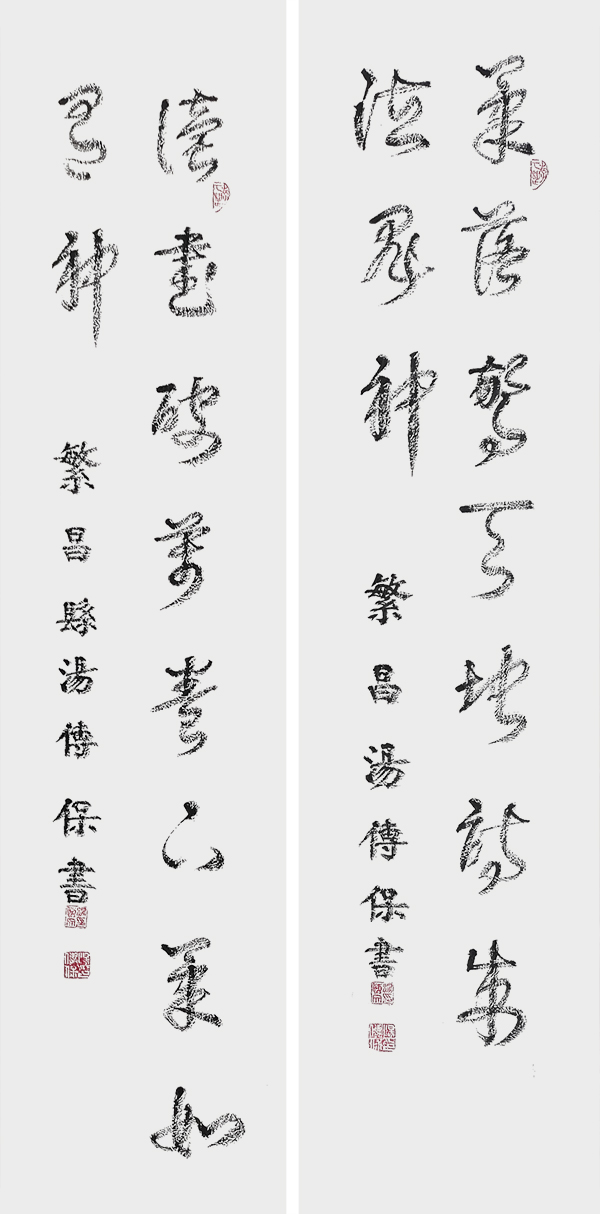 筆落驚天地詩成
泣鬼神
繁昌湯傳保書
讀書破萬卷下筆如
有神
繁昌縣湯傳保書